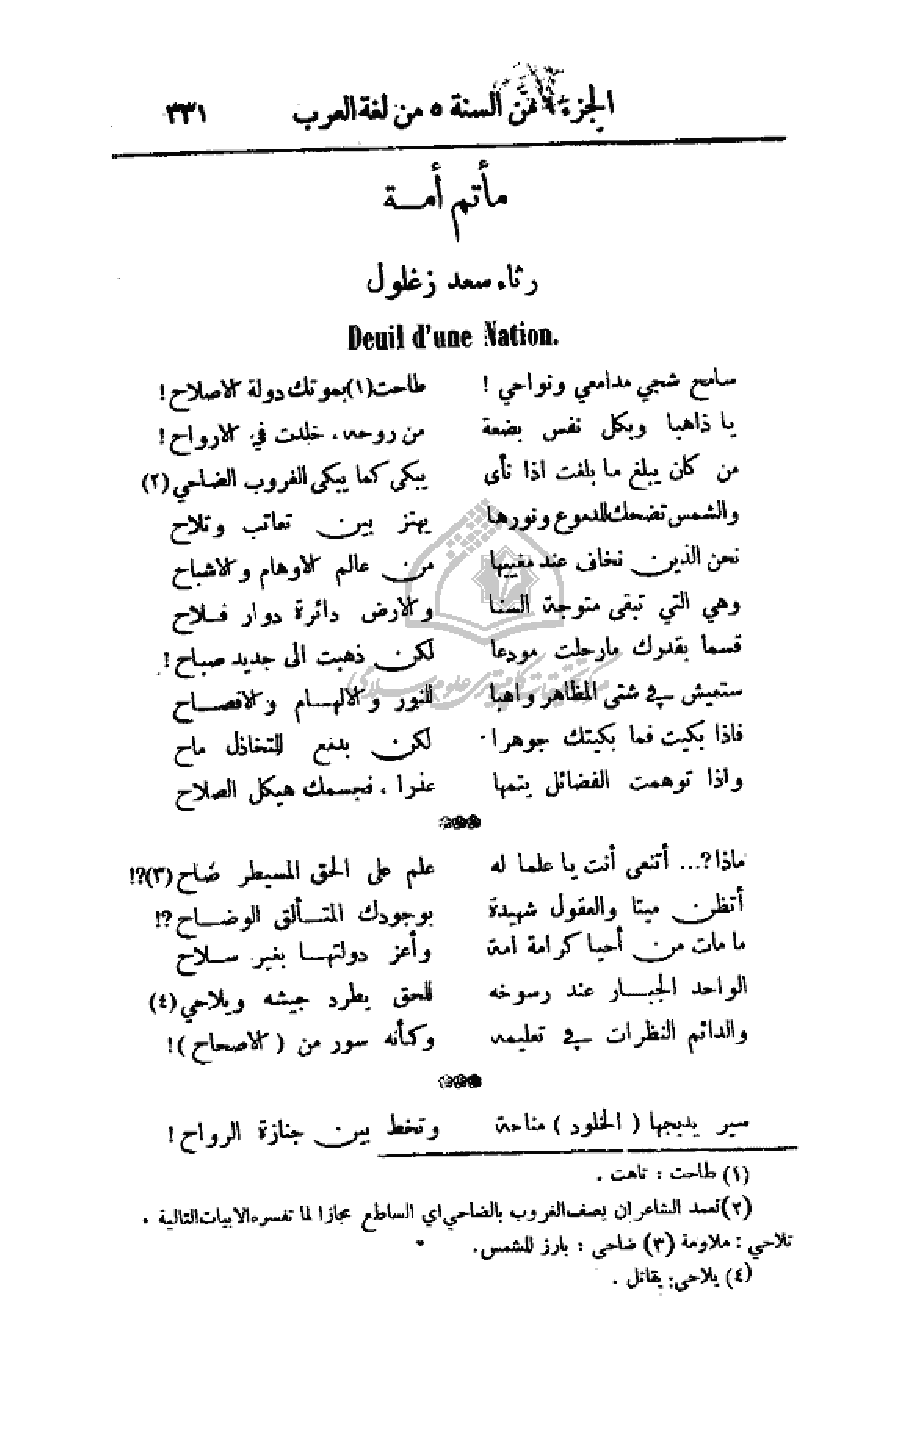 الجزء ٦ من السنة ٥ من لغة العرب ٣٣١
مأتم أمة
رثاء سعد زغلول
Deuil d'une Nation.
سامح شجي مدامعي ونواحي ! طاحت(١)بموتك دولة الاصلاح !
يا ذاهبا وبكل نفس بضعة من روحه ، خلدت في الارواح !
من كان يبلغ ما بلغت اذا نأى يبكى كما يبكى الغروب الضاحي (٢)
والشمس تضحك للدموع ونورها يهتز بين تعاتب وتلاح
نحن الذين نخاف عند مغيبها من عالم الاوهام والاشباح
وهي التي تبقى متوجة السنا والارض دائرة دوار فلاح
قسما بقدرك مارحلت مودعا لكن ذهبت الى جديد صباح !
ستعيش في شتى المظاهر واهبا للنور والالهام والافصاح
فاذا بكيت فما بكيتك جوهرا لكن بدمع للتخاذل ماح
واذا توهمت الفضائل يتمها عذرا ، فجسمك هيكل الصلاح
***
ماذا ?... أتنعى أنت يا علما له علم على الحق المسيطر ضاح (٣)?!
أتظن ميتا والعقول شهيدة بوجودك المتألق الوضاح ?!
ما مات من أحيا كرامة امة وأعز دولتها بغير سلاح
الواحد الجبار عند رسوخه للحق يطرد جيشه ويلاحي (٤)
والدائم النظرات في تعليمه وكأنه سور من ( الاصحاح ) !
***
سير يديجها ( الخلود ) مناحة وتخط بين جنازة الرواح !
(١) طاحت : تاهت .
(٢) تعمد الشاعر ان يصف الغروب بالضاحي اي الساطع مجازا لما تفسره الابيات التالية .
تلاحي : ملاومة (٣) ضاحى : بارز للشمس.
(٤) يلاحى: يقاتل .